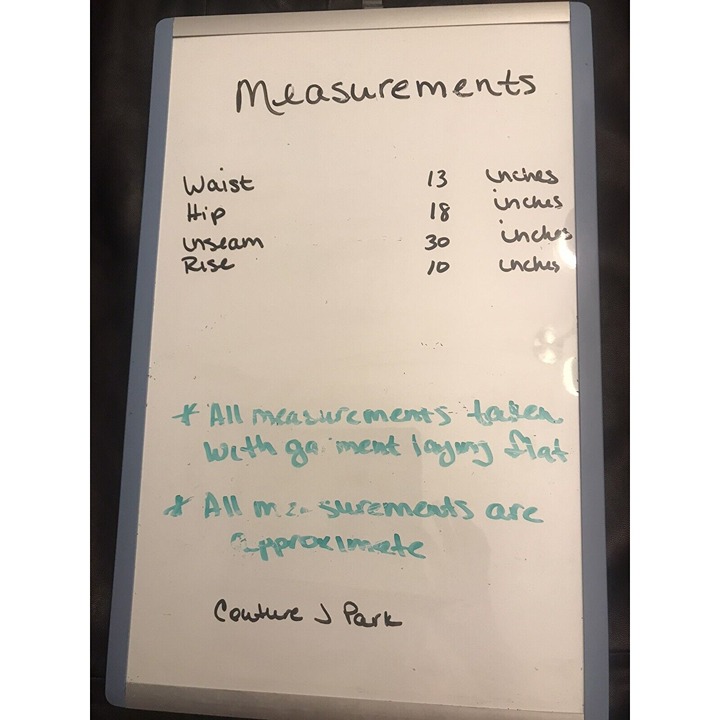 Measurements
Waist 13 inches
Hip 18 inches
inseam 30 inches
Rise 10 inches
* All measurements taken
with garment laying flat
* All measurements are
approximate
Couture J Park